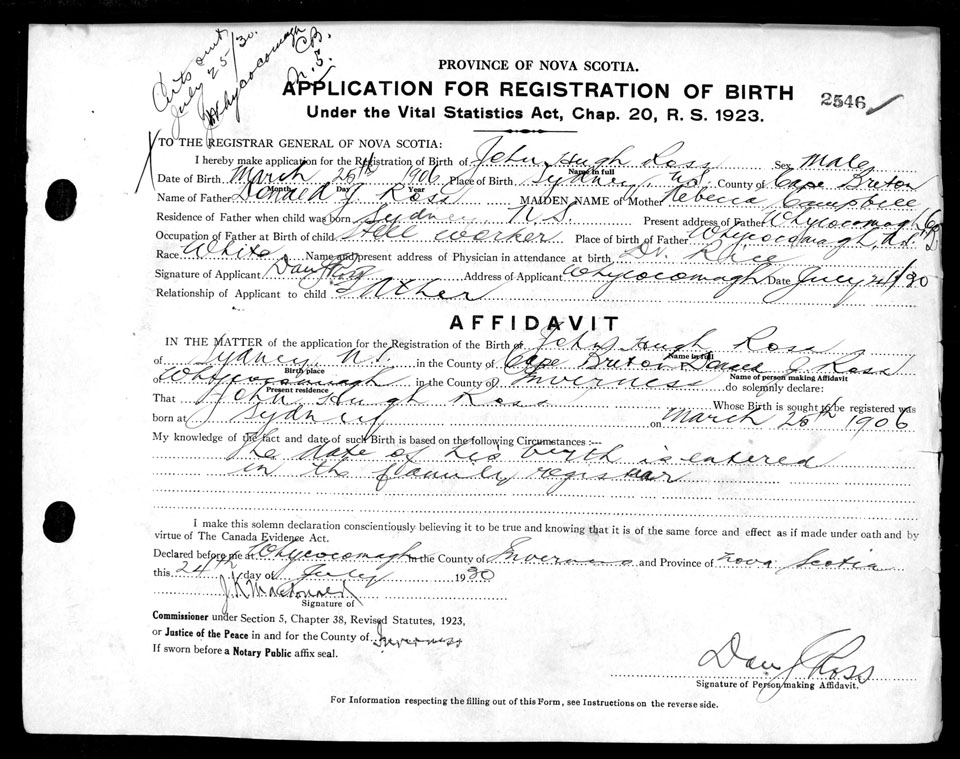 Certs sent
July 25/30.
Whycocomagh
C.B.
N.S.
PROVINCE OF NOVA SCOTIA.
APPLICATION FOR REGISTRATION OF BIRTH
2546
Under the Vital Statistics Act, Chap. 20, R. S. 1923.
TO THE REGISTRAR GENERAL OF NOVA SCOTIA:
I hereby make application for the Registration of Birth of John Hugh Ross Sex Male
Name in full
Date of Birth March 20th 1906 Place of Birth Sydney, NS. County of Cape Breton
Month Day Year
Name of Father Donald J Ross MAIDEN NAME of Mother Rebecca Campbell
Residence of Father when child was born Sydney N S Present address of Father Whycocomagh CB
Occupation of Father at Birth of child Steel worker Place of birth of Father Whycocomagh, N.S.
Race White Name and present address of Physician in attendance at birth, Dr.
Signature of Applicant Dan J Ross Address of Applicant Whycocomagh Date July 24/30
Relationship of Applicant to child Father
AFFIDAVIT
IN THE MATTER of the application for the Registration of the Birth of John Hugh Ross
Name in full
of Sydney N.S. in the County of Cape Breton, J. Ross
Birth place Name of person making Affidavit
Whycocomagh in the County of Inverness do solemnly declare:
Present residence
That John Hugh Ross Whose Birth is sought to be registered was
born at Sydney on March 20th 1906
My knowledge of the fact and date of such Birth is based on the following Circumstances :--
The date of his birth is entered
in the family registar
I make this solemn declaration conscientiously believing it to be true and knowing that it is of the same force and effect as if made under oath and by
virtue of The Canada Evidence Act.
Declared before me at Whycocomagh in the County of Inverness and Province of Nova Scotia
this 24th day of July 1930
J. K MacDonald
Signature of
Commissioner under Section 5, Chapter 38, Revised Statutes, 1923,
or Justice of the Peace in and for the County of Inverness
If sworn before a Notary Public affix seal.
Dan J Ross
Signature of Person making Affidavit.
For Information respecting the filling out of this Form, see Instructions on the reverse side.